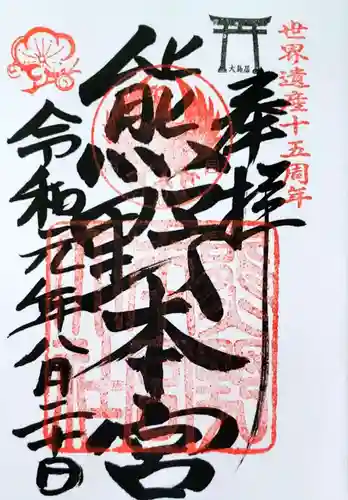 世界遺産十五周年
大鳥居
奉拝
熊野本宮
令和元年八月十一日